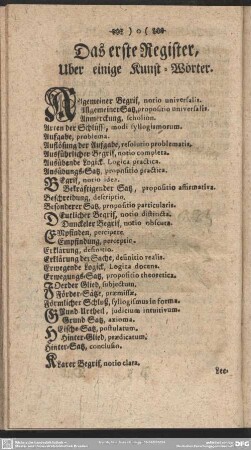 ) o (
Das erste Register,
Uber einige Kunst-Wörter.
Allgemeiner Begrif, notio universalis.
Allgemeiner Satz, propositio universalis.
Anmerckung, scholion.
Arten der Schlüsse, modi syllogismorum.
Aufgabe, problema.
Auflösung der Aufgabe, resolutio problematis.
Ausführlicher Begrif, notio completa.
Ausübende Logick, Logica practica.
Ausübungs-Satz, propositio practica.
Begrif, notio idea.
Bekräftigender Satz, propositio affirmativa.
Beschreibung, descriptio.
Besonderer Satz, propositio particularis.
Deutlicher Begrif, notio distincta.
Dunckeler Begrif, notio obscura.
Empfinden, percipere.
Empfindung, perceptio.
Erklärung, definitio.
Erklärung der Sache, definitio realis.
Erwegende Logick, Logica docens.
Erwegungs-Satz, propositio theoretica.
Förder Glied, subjectum.
Förder-Sätze, præmissæ.
Förmlicher Schluß, syllogismus in forma.
Grund Urtheil, judicium intuitivum.
Grund Satz, axioma.
Heische-Satz, postulatum.
Hinter-Glied, prædicatum.
Hinter-Satz, conclusio.
Klarer Begrif, notio clara.